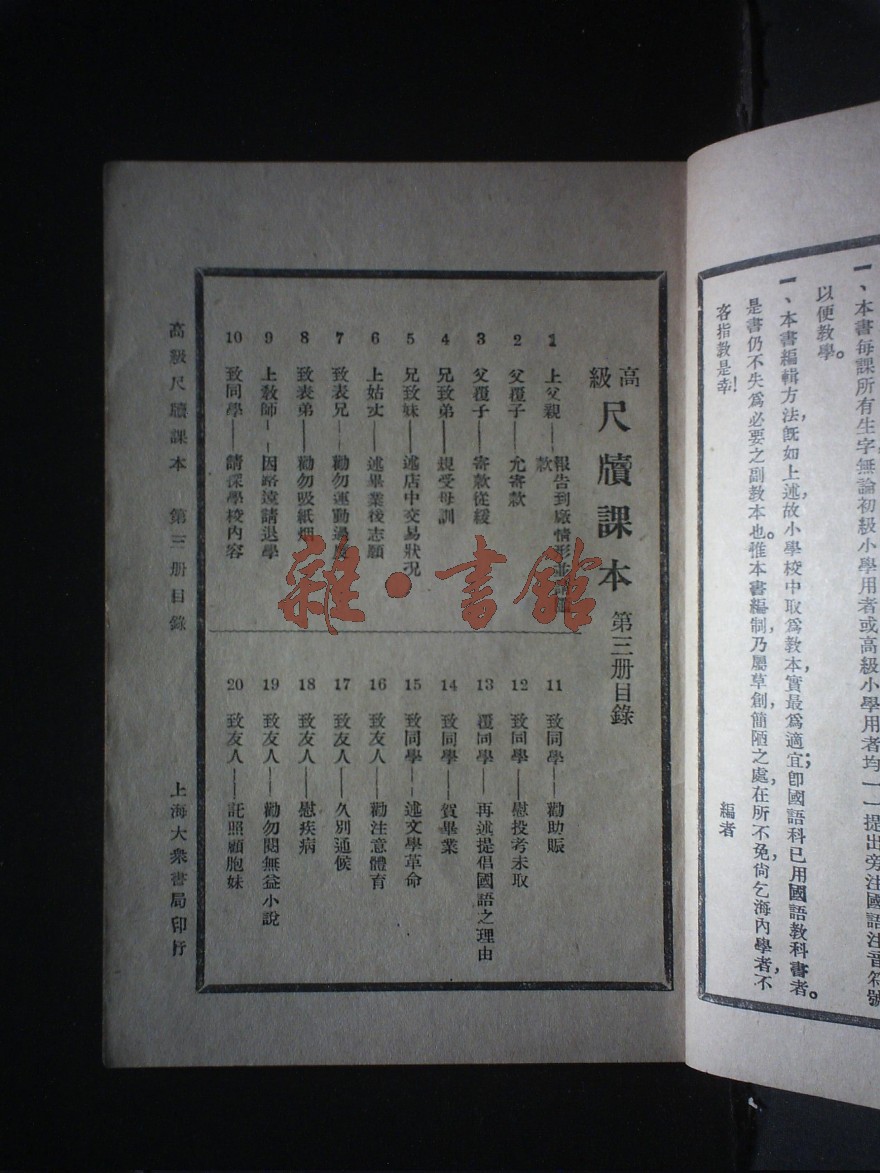 一、本書每課所有生字無論初級小學用者或高級小學用者均一一提出旁注國語注音符號
以便教學。
一、本書編輯方法,既如上述,故小學校中取爲教本實最爲適宜;卽國語科已用國語教科書者,
是書仍不失爲必要之副教本也。惟本書編制,乃屬草創,簡陋之處,在所不免,尙乞海內學者,不
吝指教是幸!
編者
高級 尺牘課本 第三册目錄
1 上父親——報告到廠情形並請
款
2 父覆子——允寄款
3 父覆子——寄款從緩
4 兄致弟——規受母訓
5 兄致妹——述店中交易狀況
6 上姑丈——述畢業後志願
7 致表兄——勸勿運動過度
8 致表弟——勸勿吸紙烟
9 上教師——因路遠請退學
10 致同學——請探學校內容
11 致同學——勸助賑
12 致同學——慰投考未取
13 覆同學——再述提倡國語之理由
14 致同學——賀畢業
15 致同學——述文學革命
16 致友人——勸注意體育
17 致友人——久別通候
18 致友人——慰疾病
19 致友人——勸勿閱無益小說
20 致友人——託照顧胞妹
高級尺牘課本 第三册目錄
上海大衆書局印行
雜·書館